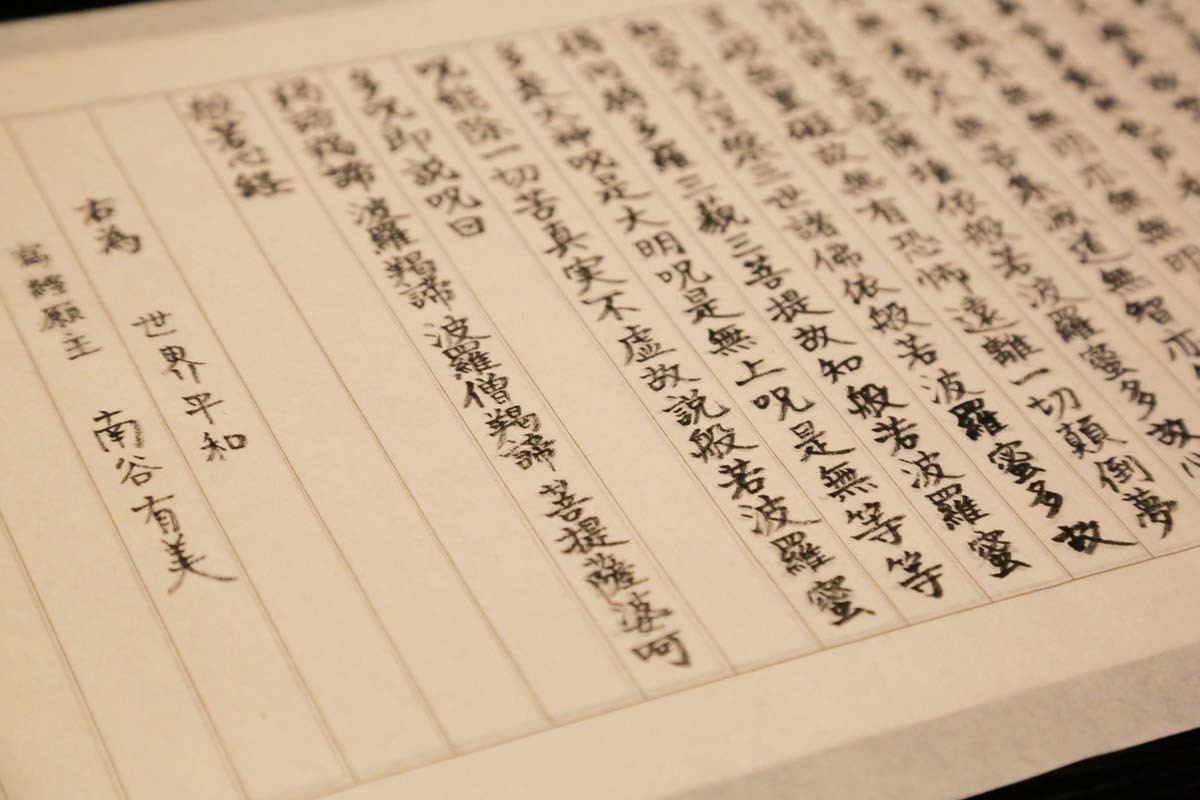 無苦集滅道無智亦
所得故菩提薩埵依般若波羅蜜多故心
罣礙無罣礙故無有恐怖遠離一切顛倒夢
想究竟涅槃三世諸佛依般若波羅蜜多故
得阿耨多羅三藐三菩提故知般若波羅蜜
多是大神呪是大明呪是無上呪是無等等
呪能除一切苦真実不虚故説般若波羅蜜
多呪即説呪曰
羯諦羯諦 波羅羯諦 波羅僧羯諦 菩提薩婆呵
般若心経
右為 世界平和
寫經願主 南谷有美